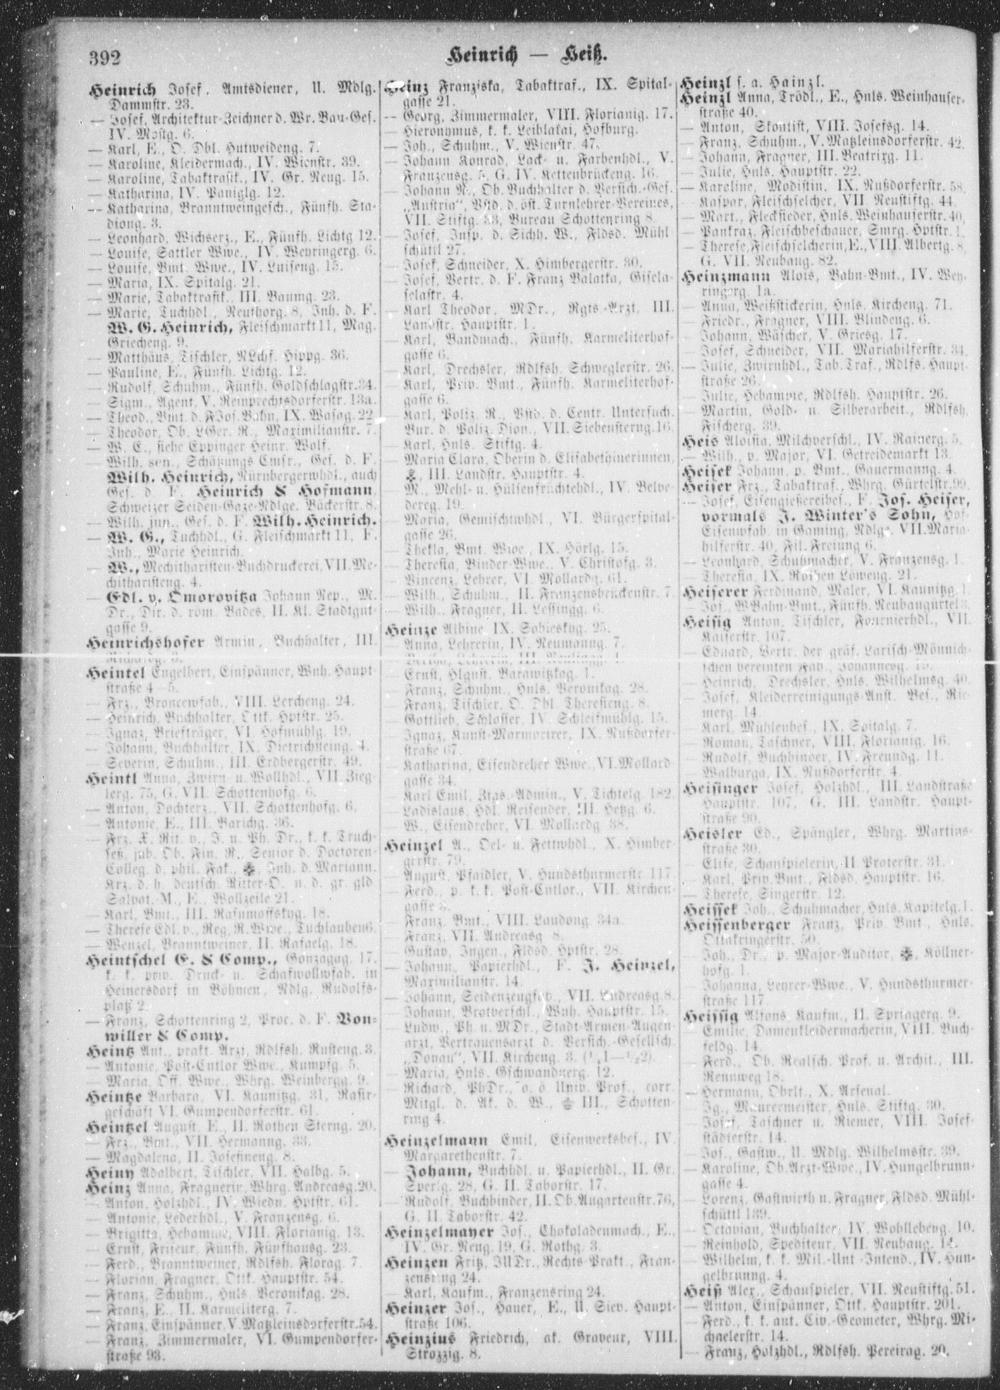 392
Heinrich — Heiß.
Heinrich Josef, Amtsdiener, U. Mdlg.
Dammstr. 23.
— Josef, Architektur-Zeichner d. Wr. Bau-Ges.
IV. Mostg. 6.
— Karl, E., O. Dbl. Hutweideng. 7.
— Karoline, Kleidermach., IV. Wienstr. 39.
— Karoline, Tabaktrafik, IV. Gr. Neug. 15.
— Katharina, IV. Paniglg. 12.
— Katharina, Branntweingesch., Fünfh. Sta-
diong. 3.
— Leonhard, Wichserz., E., Fünfh. Lichtg 12.
— Louise, Sattler Wwe., IV. Weyringerg. 6.
— Louise, Bmt. Wwe., IV. Luiseng. 15.
— Maria, IX. Spitalg. 21.
— Marie, Tabaktrafik., III. Baumg. 23.
— Marie, Tuchhdl., Neuthorg. 8, Inh. d. F.
W. G. Heinrich, Fleischmarkt 11, Mag.
Griecheng. 9.
— Matthäus, Tischler, NLchf. Hippg. 36.
— Pauline, E., Fünfh. Lichtg. 12.
— Rudolf, Schuhm., Fünfh. Goldschlagstr. 34.
— Sigm., Agent, V. Reinprechtsdorferstr. 13a.
— Theod., Bmt. d. FJos. Bahn, IX. Wasag. 22
— Theodor, Ob. LGer. R., Maximilianstr. 7.
— W. C., siehe Eppinger Heinr. Wolf.
— Wilh. sen., Schätzungs Cmsr., Ges. d. F.
Wilh. Heinrich, Nürnbergerwhdl., auch
Ges. d. F. Heinrich & Hofmann,
Schweizer Seiden-Gaze-Ndlge. Bäckerstr. 8.
— Wilh. jun., Ges. d. F. Wilh. Heinrich.
— W. G., Tuchhdl., G. Fleischmarkt 11, F.
Inh., Marie Heinrich.
— W., Mechitharisten-Buchdruckerei, VII. Me-
chitharisteng. 4.
— Edl. v. Omorovitza Johann Nep., M.
Dr., Dir. d. röm. Bades, II. Kl. Stadtgut-
gasse 9.
Heinrichshofer Armin, Buchhalter, III.
Heintel Engelbert, Einspänner, Wnh. Haupt-
straße 4—5.
— Frz., Broncewfab., VIII. Lercheng. 24.
— Heinrich, Buchhalter, Ottk. Hptstr. 25.
— Ignaz, Briefträger, VI. Hofmühlg. 19.
— Johann, Buchhalter, IX. Dietrichsteing. 4.
— Severin, Schuhm., III. Erdbergerstr. 49.
Heintl Anna, Zwirn- u. Wollhdl., VII. Zieg-
lerg. 75, G. VII. Schottenhofg. 6.
— Anton, Dochterz., VII. Schottenhofg. 6.
— Antonie, E., III. Barichg. 36.
— Frz. X. Rit. v., J. u. Ph. Dr., k. k. Truch-
seß, jub. Ob. Fin. R., Senior d. Doctoren-
Colleg. d. phil. Fak., Inh. d. Mariann.
Krz. d. h. deutsch. Ritter-O. u. d. gr. gld
Salvat. M., E., Wollzeile 21.
— Karl, Bmt., III. Rasumoffskyg. 18.
— Therese Edl. v., Reg. R. Wwe., Tuchlauben 6.
— Wenzel, Branntweiner, II. Rafaelg. 18.
Heintschel E. & Comp., Gonzagag. 17.
k. k. priv. Druck- u. Schafwollwfab. in
Heinersdorf in Böhmen, Ndlg. Rudolfs-
platz 2.
— Franz, Schottenring 2, Proc. d. F. Von-
willer & Comp.
Heintz Ant., prakt. Arzt, Rdlfsh. Rusteng. 3.
— Antonie, Post-Cntlor Wwe., Rumpfg. 5.
— Maria, Off. Wwe., Whrg. Weinbergg. 9.
Heintze Barbara, VI. Kaunitzg. 31, Rasir-
geschäft VI. Gumpendorferstr. 61.
Heintzel August, E., II. Rothen Sterng. 20.
— Frz., Bmt., VII. Hermanng. 33.
— Magdalena, II. Josefineng. 8.
Heiny Adalbert, Tischler, VII. Halbg. 5.
Heinz Anna, Fragnerin, Whrg. Andreasg. 20.
— Anton, Holzhdl., IV. Wiedn. Hptstr. 61.
— Antonie, Lederhdl., V. Franzensg. 6.
— Brigitta, Hebamme, VIII. Florianig. 13.
— Ernst, Friseur, Fünfh. Fünfhausg. 23.
— Ferd., Branntweiner, Rdlfsh. Florag. 7.
— Florian, Fragner, Ottk. Hauptstr. 54.
— Franz, Schuhm., Hnls. Veronikag. 28.
— Franz, E., II. Karmeliterg. 7.
— Franz, Einspänner, V. Matzleinsdorferstr. 54.
— Franz, Zimmermaler, VI. Gumpendorfer-
straße 93.
Heinz Franziska, Tabaktraf., IX. Spital-
gasse 21.
— Georg, Zimmermaler, VIII. Florianig. 17.
— Hieronymus, k. k. Leiblakai, Hofburg.
— Joh., Schuhm., V. Wienstr. 47.
— Johann Konrad, Lack- u. Farbenhdl., V.
Franzensg. 5, G. IV. Kettenbrückeng. 16.
— Johann N., Ob. Buchhalter d. Versich.-Ges.
„Austria“, Vstd. d. öst. Turnlehrer-Vereines,
VII. Stiftg. 33, Bureau Schottenring 8.
— Josef, Insp. d. Sichh. W., Fldsd. Mühl
schüttl 27.
— Josef, Schneider, X. Himbergerstr. 30.
— Josef, Vertr. d. F. Franz Palatka, Gisela-
selastr. 4.
— Karl Theodor, MDr., Rgts.-Arzt, III.
Landstr. Hauptstr. 1.
— Karl, Bandmach., Fünfh. Karmeliterhof-
gasse 6.
— Karl, Drechsler, Rdlfsh. Schweglerstr. 26.
— Karl, Priv. Bmt., Fünfh. Karmeliterhof-
gasse 6.
— Karl, Poliz. R., Vstd. d. Centr. Untersuch.
Bur. d. Poliz. Dion., VII. Siebensterng. 16.
— Karl, Hnls. Stiftg. 4.
— Maria Clara, Oberin d. Elisabethinerinnen,
III. Landstr. Hauptstr. 4.
— M., Mehl- u. Hülsenfrüchtehdl., IV. Belve-
dereg. 19.
— Maria, Gemischtwhdl., VI. Bürgerspital-
gasse 26.
— Thekla, Bmt. Wwe., IX. Hörlg. 15.
— Theresia, Binder-Wwe., V. Christofg. 3.
— Vincenz, Lehrer, VI. Mollardg. 61.
— Wilh., Schuhm., II. Franzensbrückenstr. 7.
— Wilh., Fragner, II. Lessingg. 6.
Heinze Albine, IX. Sobieskyg. 25.
— Anna, Lehrerin, IV. Neumanng. 7.
— Ernst, Hlgnst. Barawitzkag. 1.
— Franz, Schuhm., Hnls. Veronikag. 28.
— Franz, Tischler, O. Dbl. Theresieng. 8.
— Gottlieb, Schlosser, IV. Schleifmühlg. 15.
— Ignaz, Kunst-Marmorirer, IX. Nußdorfer-
straße 67.
— Katharina, Eisendreher Wwe., VI. Mollard
gasse 34.
— Karl Emil, Ztgs.-Admin., V. Zichtelg. 182.
— Ladislaus, Hdl. Reisender, III. Hetzg. 6.
— W., Eisendreher, VI. Mollardg. 38.
Heinzel A., Oel- u. Fettwhdl., X. Himber-
gerstr. 79.
— August, Pfaidler, V. Hundsthurmerstr. 117.
— Ferd., p. k. k. Post-Cntlor., VII. Kirchen-
gasse
— Franz, Bmt., VIII. Laudong. 34a.
— Franz, VII. Andreasg. 8.
— Gustav, Ingen., Fldsd. Hptstr. 28.
— Johann, Papierhdl., F. J. Heinzel,
Maximilianstr. 14.
— Johann, Seidenzeugfab., VII. Andreasg. 8.
— Johann, Brotverschl., Wnh. Hauptstr. 15.
— Ludw., Ph. u. MDr., Stadt-Armen-Augen-
arzt, Vertrauensarzt d. Versich.-Gesellsch.
„Donau“, VII. Kircheng. 3. (½1—½2).
— Maria, Hnls. Gschwandnerg. 12.
— Richard, PhDr., o. ö. Univ. Prof., corr.
Mitgl. d. Ak. d. W., III., Schotten-
ring 4.
Heinzelmann Emil, Eisenwerksbes., IV.
Margarethenstr. 7.
— Johann, Buchhdl. u. Papierhdl., II. Gr.
Sperlg. 28, G. II. Taborstr. 17.
— Rudolf, Buchbinder, II. Ob. Augartenstr. 76,
G. II. Taborstr. 42.
Heinzelmayer Jos., Chokoladenmach., E.,
IV. Gr. Neug. 19, G. Rothg. 3.
Heinzen Fritz, JUDr., Rechts-Prakt., Fran-
zensring 24.
— Karl, Kaufm., Franzensring 24.
Heinzer Jos., Hauer, E., U. Siev. Haupt-
straße 106.
Heinzius Friedrich, ak. Graveur, VIII.
Strozzig. 8.
Heinzl s. a. Hainzl.
Heinzl Anna, Trödl., E., Hnls. Weinhauser-
straße 40.
— Anton, Skontist, VIII. Josefsg. 14.
— Franz, Schuhm., V. Matzleinsdorferstr. 42.
— Johann, Fragner, III. Beatrixg. 11.
— Julie, Hnls. Hauptstr. 22.
— Karoline, Modistin, IX. Nußdorferstr. 58.
— Kaspar, Fleischselcher, VII Neustiftg. 44.
— Mart., Flecksieder, Hnls. Weinhauserstr. 40,
— Pankraz, Fleischbeschauer, Smrg. Hptstr. 1.
— Therese, Fleischselcherin, E., VIII. Albertg. 8,
G. VII. Neubaug. 82.
Heinzmann Alois, Bahn-Bmt., IV. Wey-
ringerg. 1a.
— Anna, Weißstickerin, Hnls. Kircheng. 71.
— Friedr., Fragner, VIII. Blindeng. 6.
— Johann, Wäscher, V. Griesg. 17.
— Josef, Schneider, VII. Mariahilferstr. 34.
— Julie, Zwirnhdl., Tab. Traf., Rdlfs. Haupt-
straße 26.
— Julie, Hebamme, Rdlfsh. Hauptstr. 26.
— Martin, Gold- u. Silberarbeit., Rdlfsh.
Fischerg. 39.
Heis Aloisia, Milchverschl., IV. Rainerg. 5.
— Wilh., p. Major, VI. Getreidemarkt 13.
Heisek Johann, p. Bmt., Gauermanng. 4.
Heiser Frz., Tabaktraf., Whrg. Gürtelstr. 99.
— Josef, Eisengießereibes., F. Jos. Heiser,
vormals J. Winter's Sohn, Hof-
Eisenwfab. in Gaming, Ndlg. VII. Maria-
hilferstr. 40, Fil. Freiung 6.
— Leonhard, Schuhmacher, V. Franzensg. 1.
— Theresia, IX. Rothen Löweng. 21.
Heiserer Ferdinand, Maler, VI. Kaunitzg. 1.
— Jos., WBahn-Bmt., Fünfh. Neubaugürtel 3.
Heisig Anton, Tischler, Fournierhdl., VII.
Kaiserstr. 107.
— Eduard, Vertr. der gräf. Larisch-Mönnich-
schen vereinten Fab., Johannesg. 15.
— Heinrich, Drechsler, Hnls. Wilhelmsg. 40.
— Josef, Kleiderreinigungs-Anst. Bes., Rie-
merg. 14.
— Karl, Mühlenbes., IX. Spitalg. 7.
— Roman, Taschner, VIII. Florianig. 16.
— Rudolf, Buchbinder, IV. Freundg. 11.
— Walburga, IX. Nußdorferstr. 4.
Heisinger Josef, Holzhdl., III. Landstraße
Hauptstr. 107, G. III. Landstr. Haupt-
straße 90.
Heisler Ed., Spängler, Whrg. Martins-
straße 30.
— Elise, Schauspielerin, II. Praterstr. 31.
— Karl, Priv. Bmt., Fldsd. Hauptstr. 16.
— Therese, Singerstr. 12.
Heissek Joh., Schuhmacher, Hnls. Kapitelg. 1.
Heissenberger Franz, Priv. Bmt., Hnls.
Ottakringerstr. 50.
— Joh., Dr., p. Major-Auditor, Köllner-
hofg. 1.
— Johanna, Lehrer-Wwe., V. Hundsthurmer-
straße 117.
Heissig Alfons, Kaufm., II. Springerg. 9.
— Emilie, Damenkleidermacherin, VIII. Buch-
feldg. 14.
— Ferd., Ob. Realsch. Prof. u. Archit., III.
Rennweg 18.
— Hermann, Obrlt., X. Arsenal.
— Ig., Maurermeister, Hnls. Stiftg. 30.
— Josef, Taschner u. Riemer, VIII. Josef-
städterstr. 14.
— Jos., Gastw., U. Mdlg. Wilhelmsstr. 39.
— Karoline, Ob. Arzt-Wwe., IV. Hungelbrunn-
gasse 4.
— Lorenz, Gastwirth u. Fragner, Fldsd. Mühl-
schüttl 189.
— Octavian, Buchhalter, IV. Wohllebeng. 10.
— Reinhold, Spediteur, VII. Neubaug.
— Wilhelm, k. k. Mil.-Unt.-Intend., IV. Hun-
gelbrunng. 4.
Heiß Alex., Schauspieler, VII. Neustiftg. 51.
— Anton, Einspänner, Ottk. Hauptstr. 201.
— Ferd., k. k. aut. Civ.-Geometer, Whrg. Mi-
chaelerstr. 14.
— Franz, Holzhdl., Rdlfsh. Pereirag. 20.